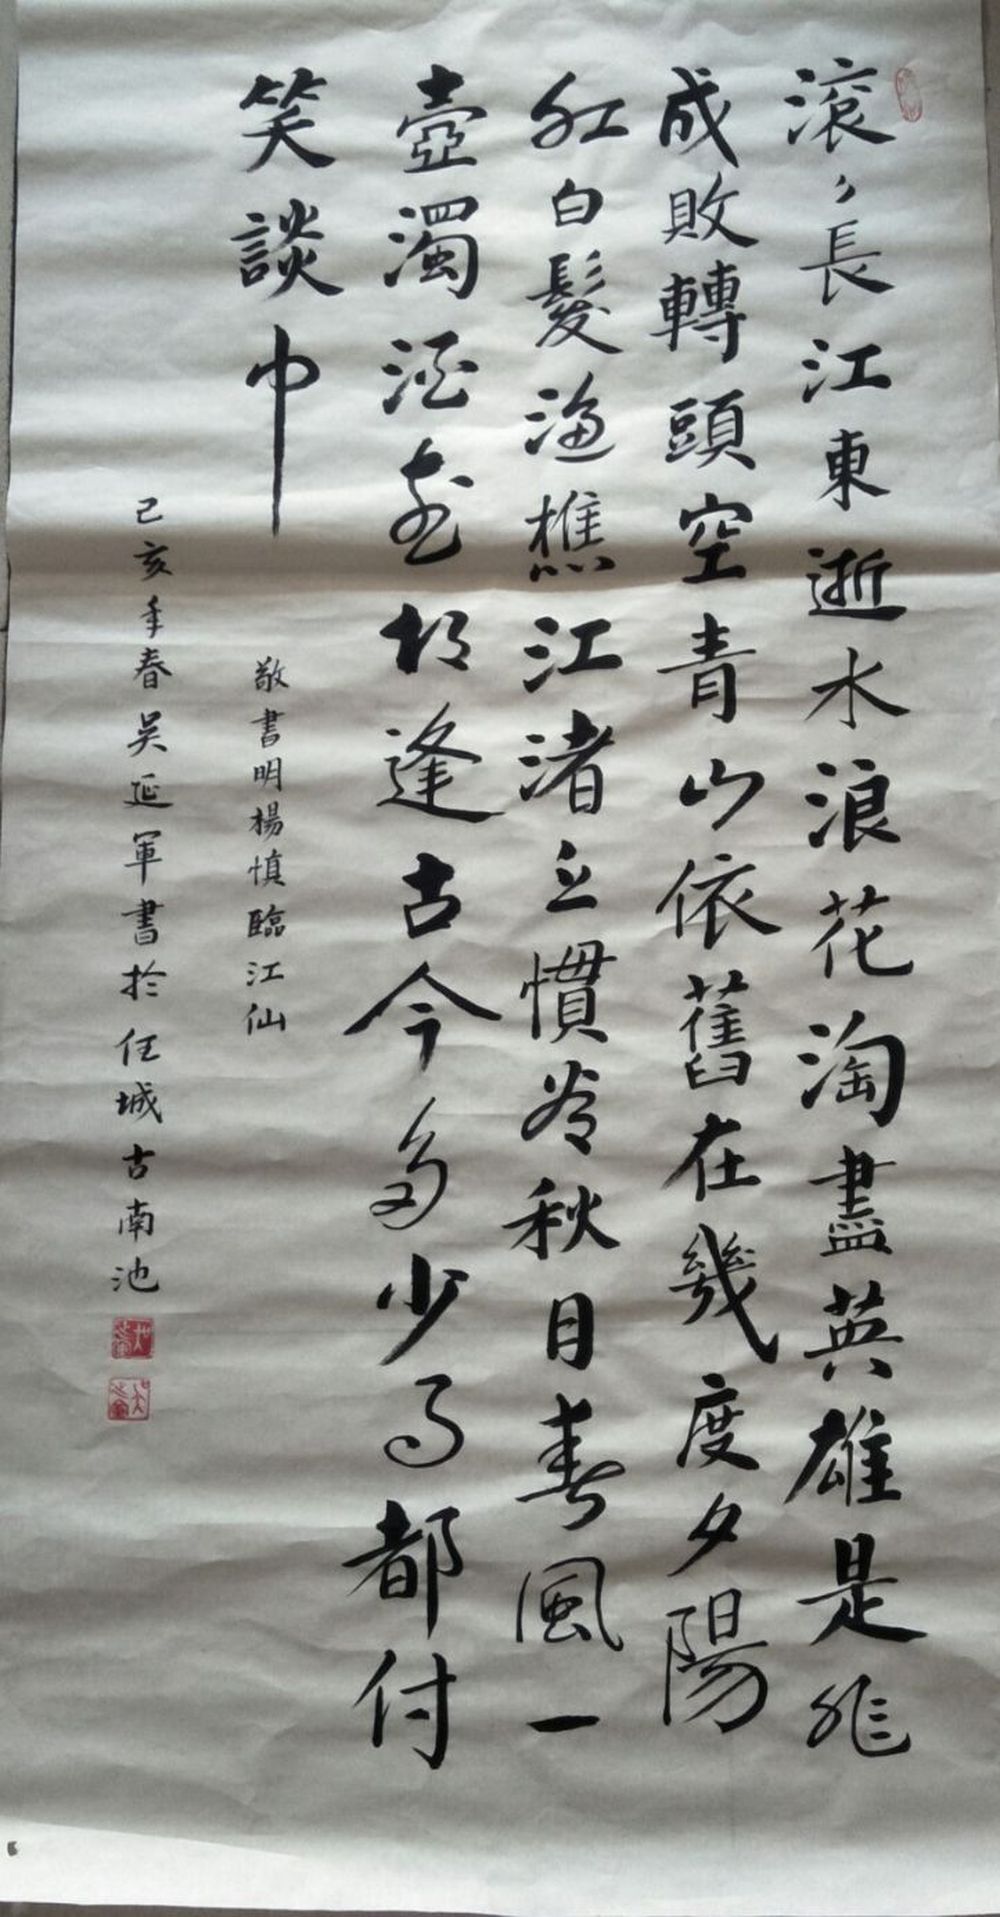 滚々長江東逝水浪花淘盡英雄是非
成敗轉頭空青山依舊在幾度夕陽
紅白髮漁樵江渚上慣看秋月春風一
壺濁酒喜相逢古今多少事都付
笑談中
敬書明楊慎臨江仙
己亥年春吳延軍書於任城古南池